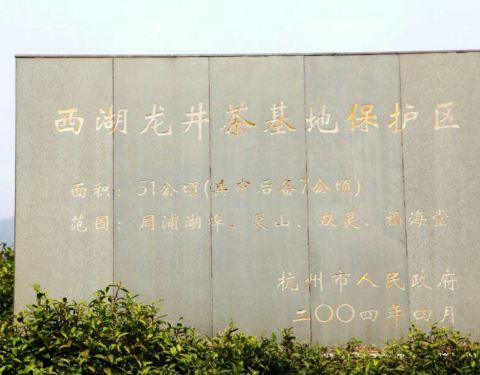 西湖龙井茶基地保护区
面积：51公顷(其中后备7公顷)
范围：周浦湖埠、灵山、双灵、福海堂
杭州市人民政府
二〇〇四年四月